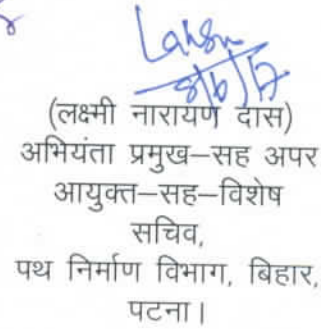 Lakshm
8/6/17
(लक्ष्मी नारायण दास)
अभियंता प्रमुख–सह अपर
आयुक्त–सह–विशेष
सचिव,
पथ निर्माण विभाग, बिहार,
पटना।